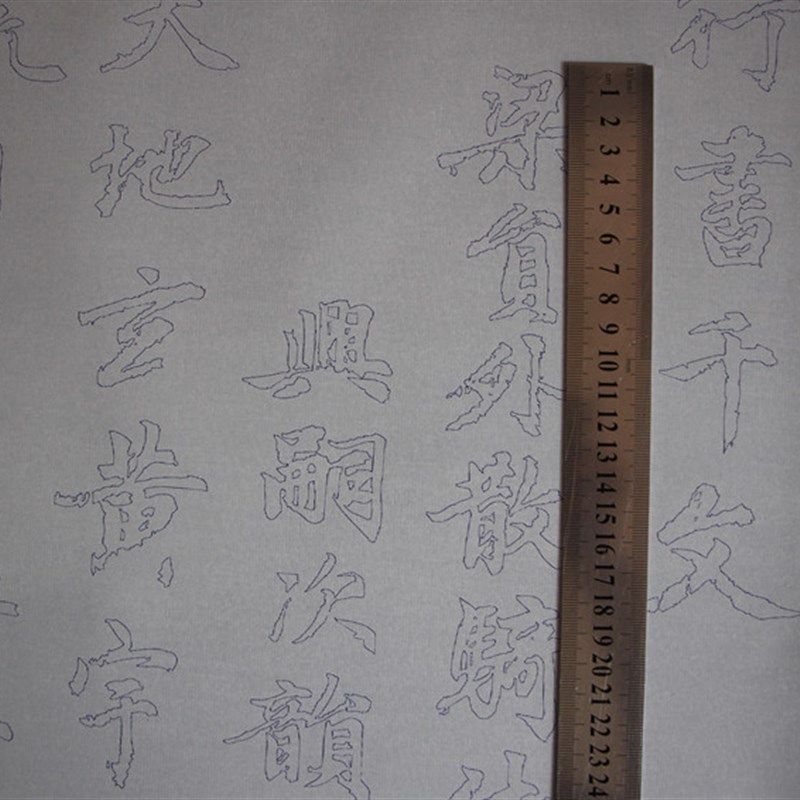 行書千文
梁員外散騎
興嗣次韻
天地玄黃宇
1 2 3 4 5 6 7 8 9 10 11 12 13 14 15 16 17 18 19 20 21 22 23 24